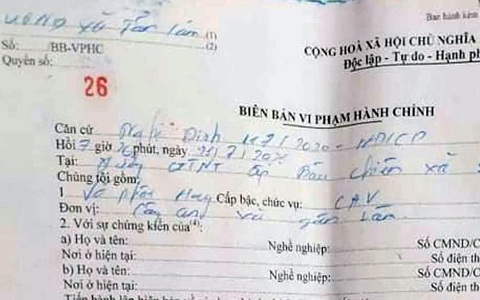 UBND xã Tân Lân (1)
(2)
Ban hành kèm
Số: /BB-VPHC
CỘNG HOÀ XÃ HỘI CHỦ NGHĨA
Quyển số:
Độc lập - Tự do - Hạnh ph
26
BIÊN BẢN VI PHẠM HÀNH CHÍNH
Căn cứ Nghị Định 117/2020 - NĐCP
Hồi 7 giờ phút, ngày
Tại: GTNT ấp xã
Chúng tôi gồm:
1 Cấp bậc, chức vụ: CAV
Đơn vị: Công an xã Tân Lân
2. Với sự chứng kiến của(4):
a) Họ và tên: Nghề nghiệp: Số CMND/C
Nơi ở hiện tại: Số điện th
b) Họ và tên: Nghề nghiệp: Số CMND/C
Nơi ở hiện tại: Số điện
Tiến hành lập biên bản